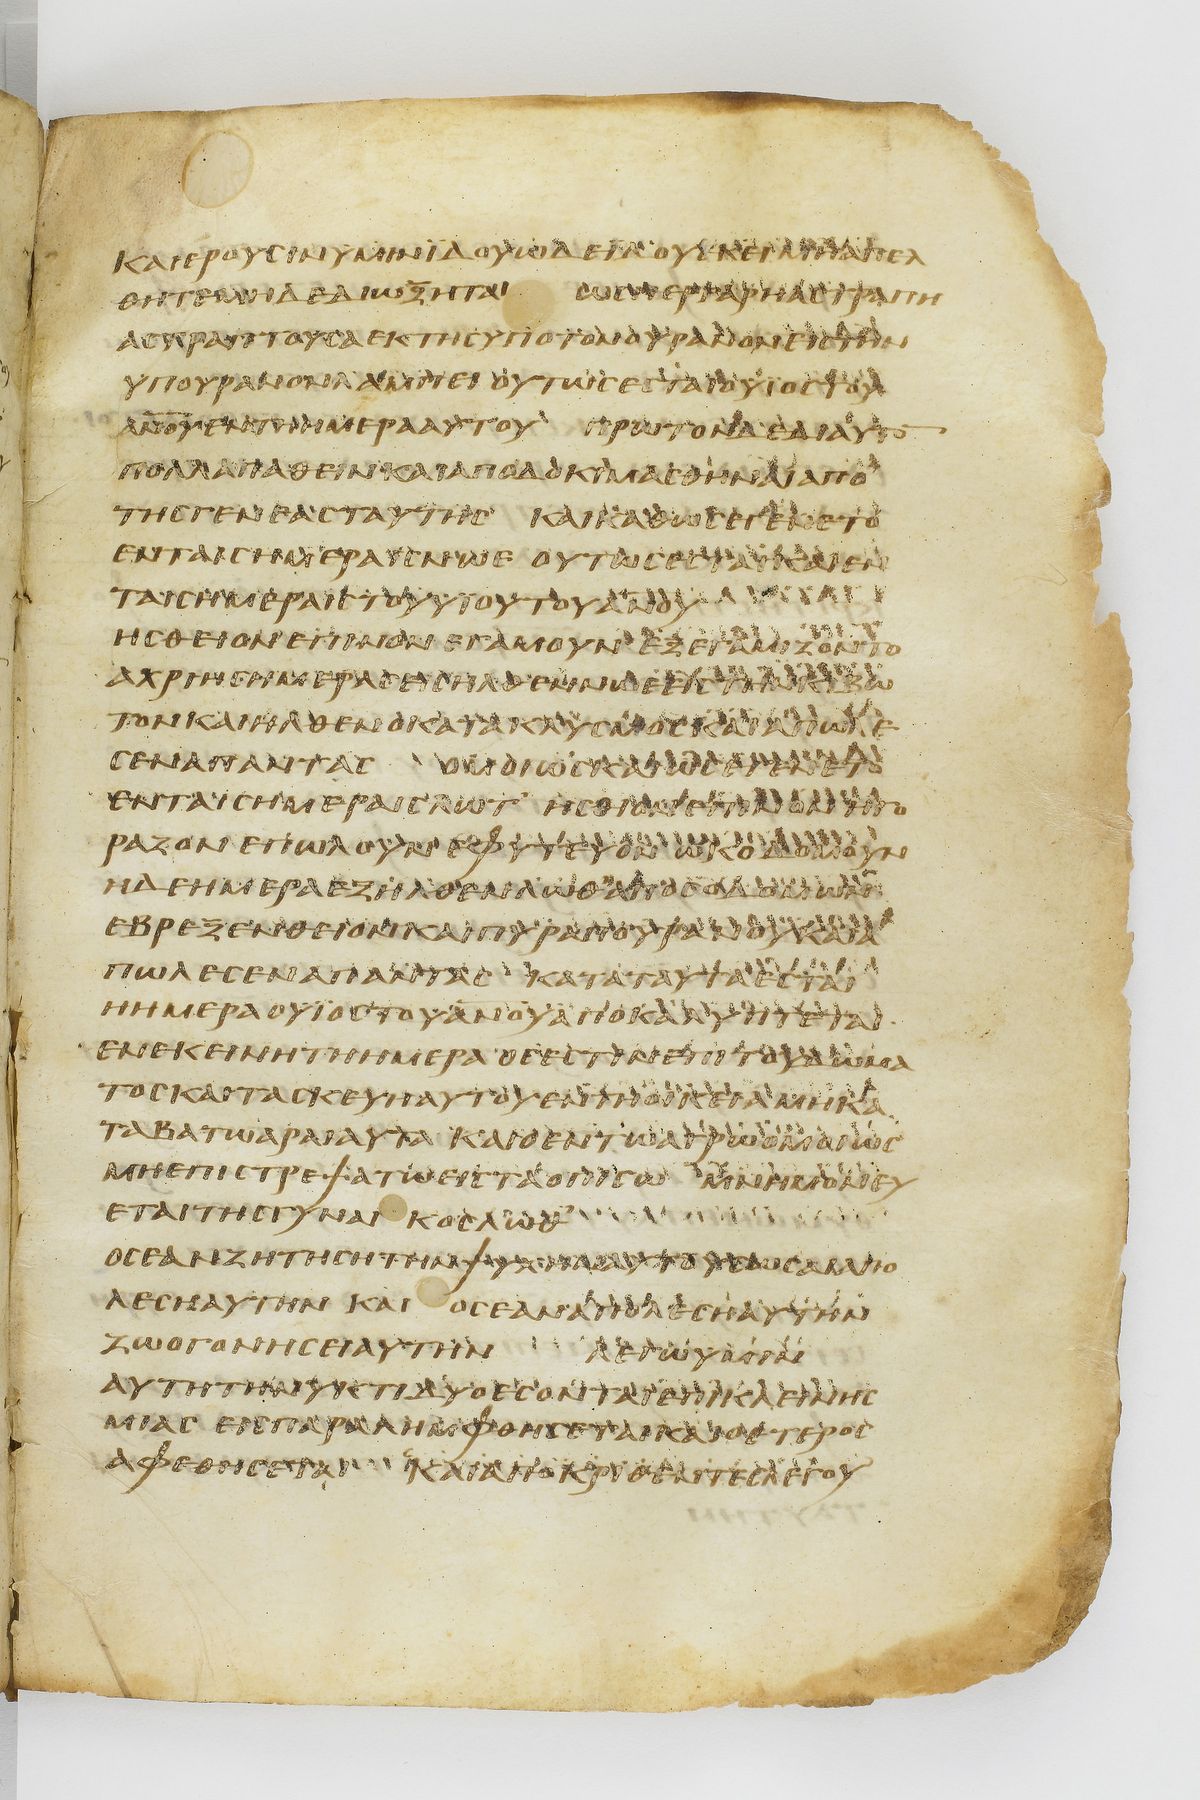 ΚΑΙΕΡΟΥCΙΝΥΜΙΝΙΔΟΥωΔΕΙΔΟΥΕΚΕΙΜΗΑΠΕΛ
ΘΗΤΕΜΗΔΕΔΙωΞΗΤΑΙ ωCΠΕΡΓΑΡΗΑCΤΡΑΠΗ
ΑCΤΡΑΠΤΟΥCΑΕΚΤΗCΥΠΟΤΟΝΟΥΡΑΝΟΝΕΙCΤΗΝ
ΥΠΟΥΡΑΝΟΝΛΑΜΠΕΙ ΟΥΤωCΕCΤΑΙΟΥΙΟCΤΟΥ
ΑΝΟΥΕΝΤΗΗΜΕΡΑΑΥΤΟΥ ΠΡωΤΟΝΔΕΔΙΑΥΤΟ
ΠΟΛΛΑΠΑΘΕΙΝΚΑΙΑΠΟΔΟΚΙΜΑCΘΗΝΑΙΑΠΟ
ΤΗCΓΕΝΕΑCΤΑΥΤΗC ΚΑΙΚΑΘωCΕΓΕΝΕΤΟ
ΕΝΤΑΙCΗΜΕΡΑΙCΝωΕ ΟΥΤωCΕCΤΑΙΚΑΙΕΝ
ΤΑΙCΗΜΕΡΑΙCΤΟΥΥΙΟΥΤΟΥΑΝΟΥ
ΗCΘΕΙΟΝΕΠΙΝΟΝΕΓΑΜΟΥΝΕΞΕΓΑΜΙΖΟΝΤΟ
ΑΧΡΙΗCΗΜΕΡΑCΕΙCΗΛΘΕΝΝωΕΕΙCΤΗΝΚΙΒω
ΤΟΝΚΑΙΗΛΘΕΝΟΚΑΤΑΚΛΥCΜΟCΚΑΙΑΠωΛΕ
CΕΝΑΠΑΝΤΑC ΟΜΟΙωCΚΑΙωCΕΓΕΝΕΤΟ
ΕΝΤΑΙCΗΜΕΡΑΙCΛωΤ ΗCΘΙΟΝΕΠΙΝΟΝΗΓΟ
ΡΑΖΟΝΕΠωΛΟΥΝΕΦΥΤΕΥΟΝωΚΟΔΟΜΟΥΝ
ΗΔΕΗΜΕΡΑΕΞΗΛΘΕΝΛωΘΑΠΟCΟΔΟΜωΝ
ΕΒΡΕΞΕΝΘΕΙΟΝΚΑΙΠΥΡΑΠΟΥΡΑΝΟΥΚΑΙΑ
ΠωΛΕCΕΝΑΠΑΝΤΑC ΚΑΤΑΤΑΥΤΑΕCΤΑΙ
ΗΗΜΕΡΑΟΥΙΟCΤΟΥΑΝΟΥΑΠΟΚΑΛΥΠΤΕΤΑΙ
ΕΝΕΚΕΙΝΗΤΗΗΜΕΡΑ ΟCΕCΤΙΝΕΠΙΤΟΥΔωΜΑ
ΤΟCΚΑΙΤΑCΚΕΥΗΑΥΤΟΥΕΝΤΗΟΙΚΕΙΑΜΗΚΑ
ΤΑΒΑΤωΑΡΑΙΑΥΤΑ ΚΑΙΟΕΝΤωΑΓΡωΟΜΟΙωC
ΜΗΕΠΙCΤΡΕΨΑΤωΕΙCΤΑΟΠΙCω ΜΝΗΜΟΝΕΥ
ΕΤΑΙΤΗCΓΥΝΑΙΚΟCΛωΘ
ΟCΕΑΝΖΗΤΗCΗΤΗΝΨΥΧΗΝΑΥΤΟΥCωCΑΙΑΠΟ
ΛΕCΗΑΥΤΗΝ ΚΑΙ ΟCΕΑΝΑΠΟΛΕCΗΑΥΤΗΝ
ΖωΟΓΟΝΗCΕΙΑΥΤΗΝ ΛΕΓωΥΜΙΝ
ΑΥΤΗΤΗΝΥΚΤΙΔΥΟΕCΟΝΤΑΙΕΠΙΚΛΕΙΝΗC
ΜΙΑC ΕΙCΠΑΡΑΛΗΜΦΘΗCΕΤΑΙΚΑΙΟΕΤΕΡΟC
ΑΦΕΘΗCΕΤΑΙ ΚΑΙΑΠΟΚΡΙΘΕΝΤΕCΛΕΓΟΥ